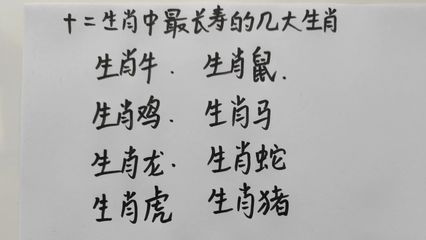 十二生肖中最长寿的几大生肖
生肖牛. 生肖鼠.
生肖鸡. 生肖马
生肖龙. 生肖蛇
生肖虎 生肖猪